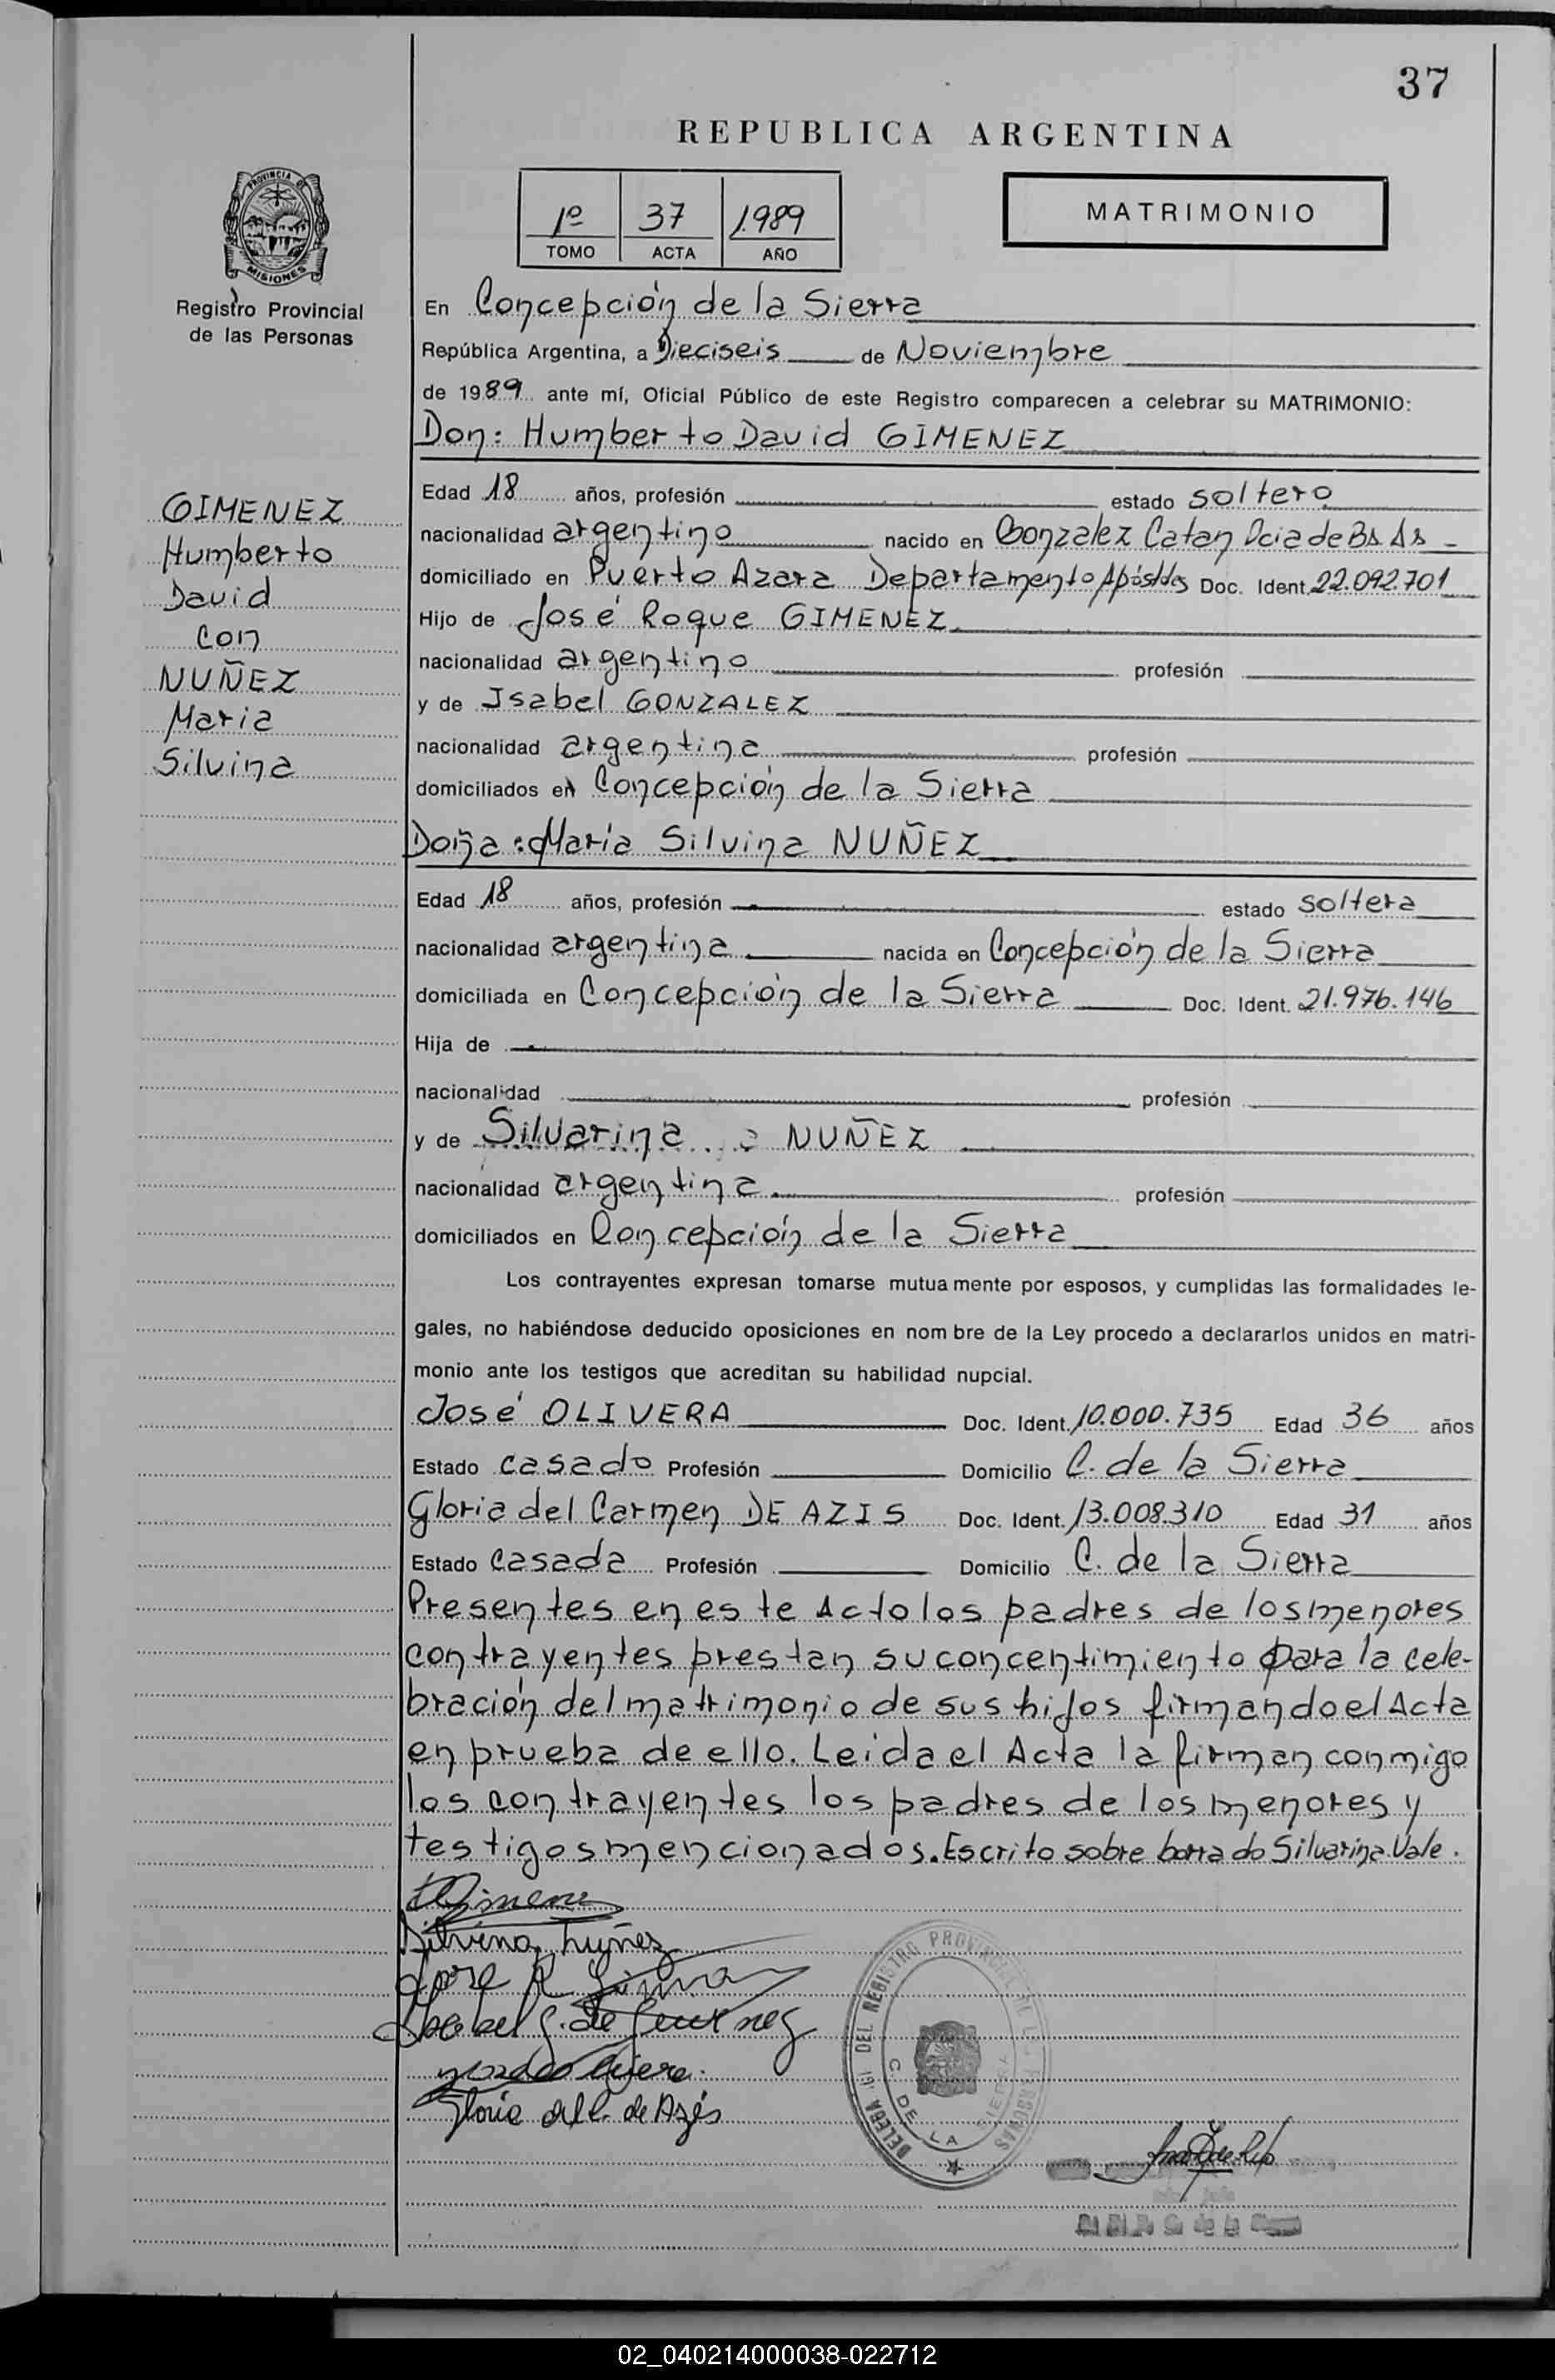 37
REPUBLICA ARGENTINA
1º 37 1989
TOMO ACTA AÑO
MATRIMONIO
PROVINCIA DE
MISIONES
Registro Provincial
de las Personas
GIMENEZ
Humberto
David
con
NUÑEZ
Maria
Silvina
En Concepción de la Sierra
República Argentina, a Dieciseis de Noviembre
de 1989 ante mí, Oficial Público de este Registro comparecen a celebrar su MATRIMONIO:
Don: Humberto David GIMENEZ
Edad 18 años, profesión estado soltero
nacionalidad argentino nacido en Gonzalez Catan Pcia de Bs As
domiciliado en Puerto Azara Departamento Apóstoles Doc. Ident. 22.092.701
Hijo de José Roque GIMENEZ
nacionalidad argentino profesión
y de Isabel GONZALEZ
nacionalidad argentina profesión
domiciliados en Concepción de la Sierra
Doña: María Silvina NUÑEZ
Edad 18 años, profesión estado soltera
nacionalidad argentina nacida en Concepción de la Sierra
domiciliada en Concepción de la Sierra Doc. Ident. 21.976.146
Hija de
nacionalidad profesión
y de Silvarina NUÑEZ
nacionalidad argentina profesión
domiciliados en Concepción de la Sierra
Los contrayentes expresan tomarse mutuamente por esposos, y cumplidas las formalidades le-
gales, no habiéndose deducido oposiciones en nombre de la Ley procedo a declararlos unidos en matri-
monio ante los testigos que acreditan su habilidad nupcial.
José OLIVERA Doc. Ident. 10.000.735 Edad 36 años
Estado casado Profesión Domicilio C. de la Sierra
Gloria del Carmen DE AZIS Doc. Ident. 13.008.310 Edad 31 años
Estado casada Profesión Domicilio C. de la Sierra
Presentes en este Acto los padres de los menores
contrayentes prestan su concentimiento para la cele-
bración del matrimonio de sus hijos firmando el Acta
en prueba de ello. Leida el Acta la firman conmigo
los contrayentes los padres de los menores y
testigos mencionados. Escrito sobre borrado Silvarina. Vale.
Silvina Nuñez
Jose R
Isabel G. de Gimenez
Gloria del C. de Azis
DEL REGISTRO PROVINCIAL DE LAS PERSONAS
C. DE LA SIERRA
02_040214000038-022712